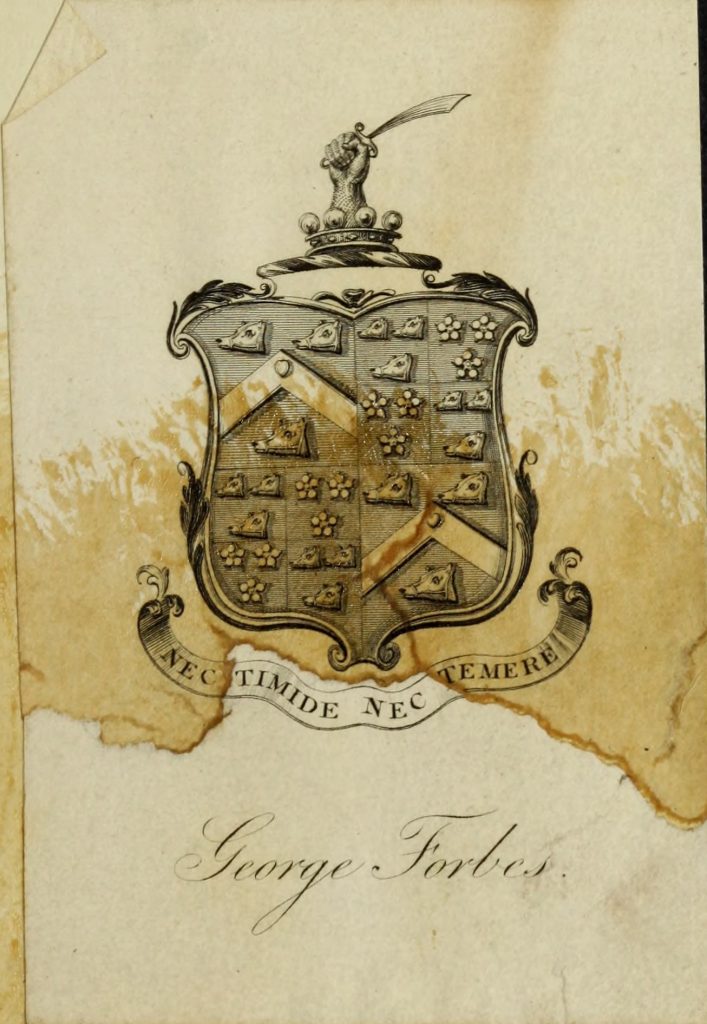 NEC TIMIDE NEC TEMERE
George Forbes.